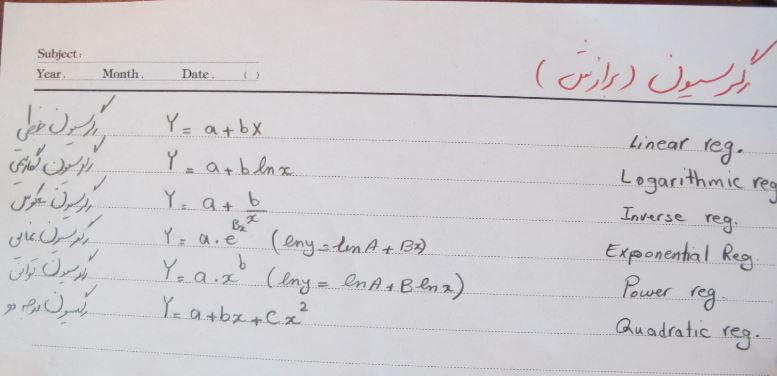 Subject:
Year. Month. Date. ( )
رگرسیون (برازش)
رگرسیون خطی Y = a + bX Linear reg.
رگرسیون لگاریتمی Y = a + b ln x Logarithmic reg
رگرسیون معکوس Y = a + b/x Inverse reg.
رگرسیون نمایی Y = a . e^Bx (lny = lnA + Bx) Exponential Reg.
رگرسیون توانی Y = a . x^b (lny = lnA + B lnx) Power reg.
رگرسیون درجه دو Y = a + bx + cx^2 Quadratic reg.